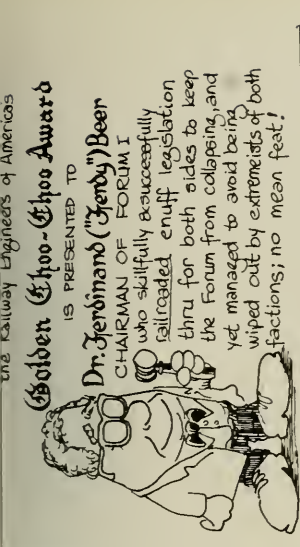 the Railway Engineers of Americas
Golden Choo-Choo Award
IS PRESENTED TO
Dr. Ferdinand ("Ferdy") Beer
CHAIRMAN OF FORUM I
who skillfully & successfully
railroaded enuff legislation
thru for both sides to keep
the Forum from collapsing, and
yet managed to avoid being
wiped out by extremeists of both
factions; no mean feat!